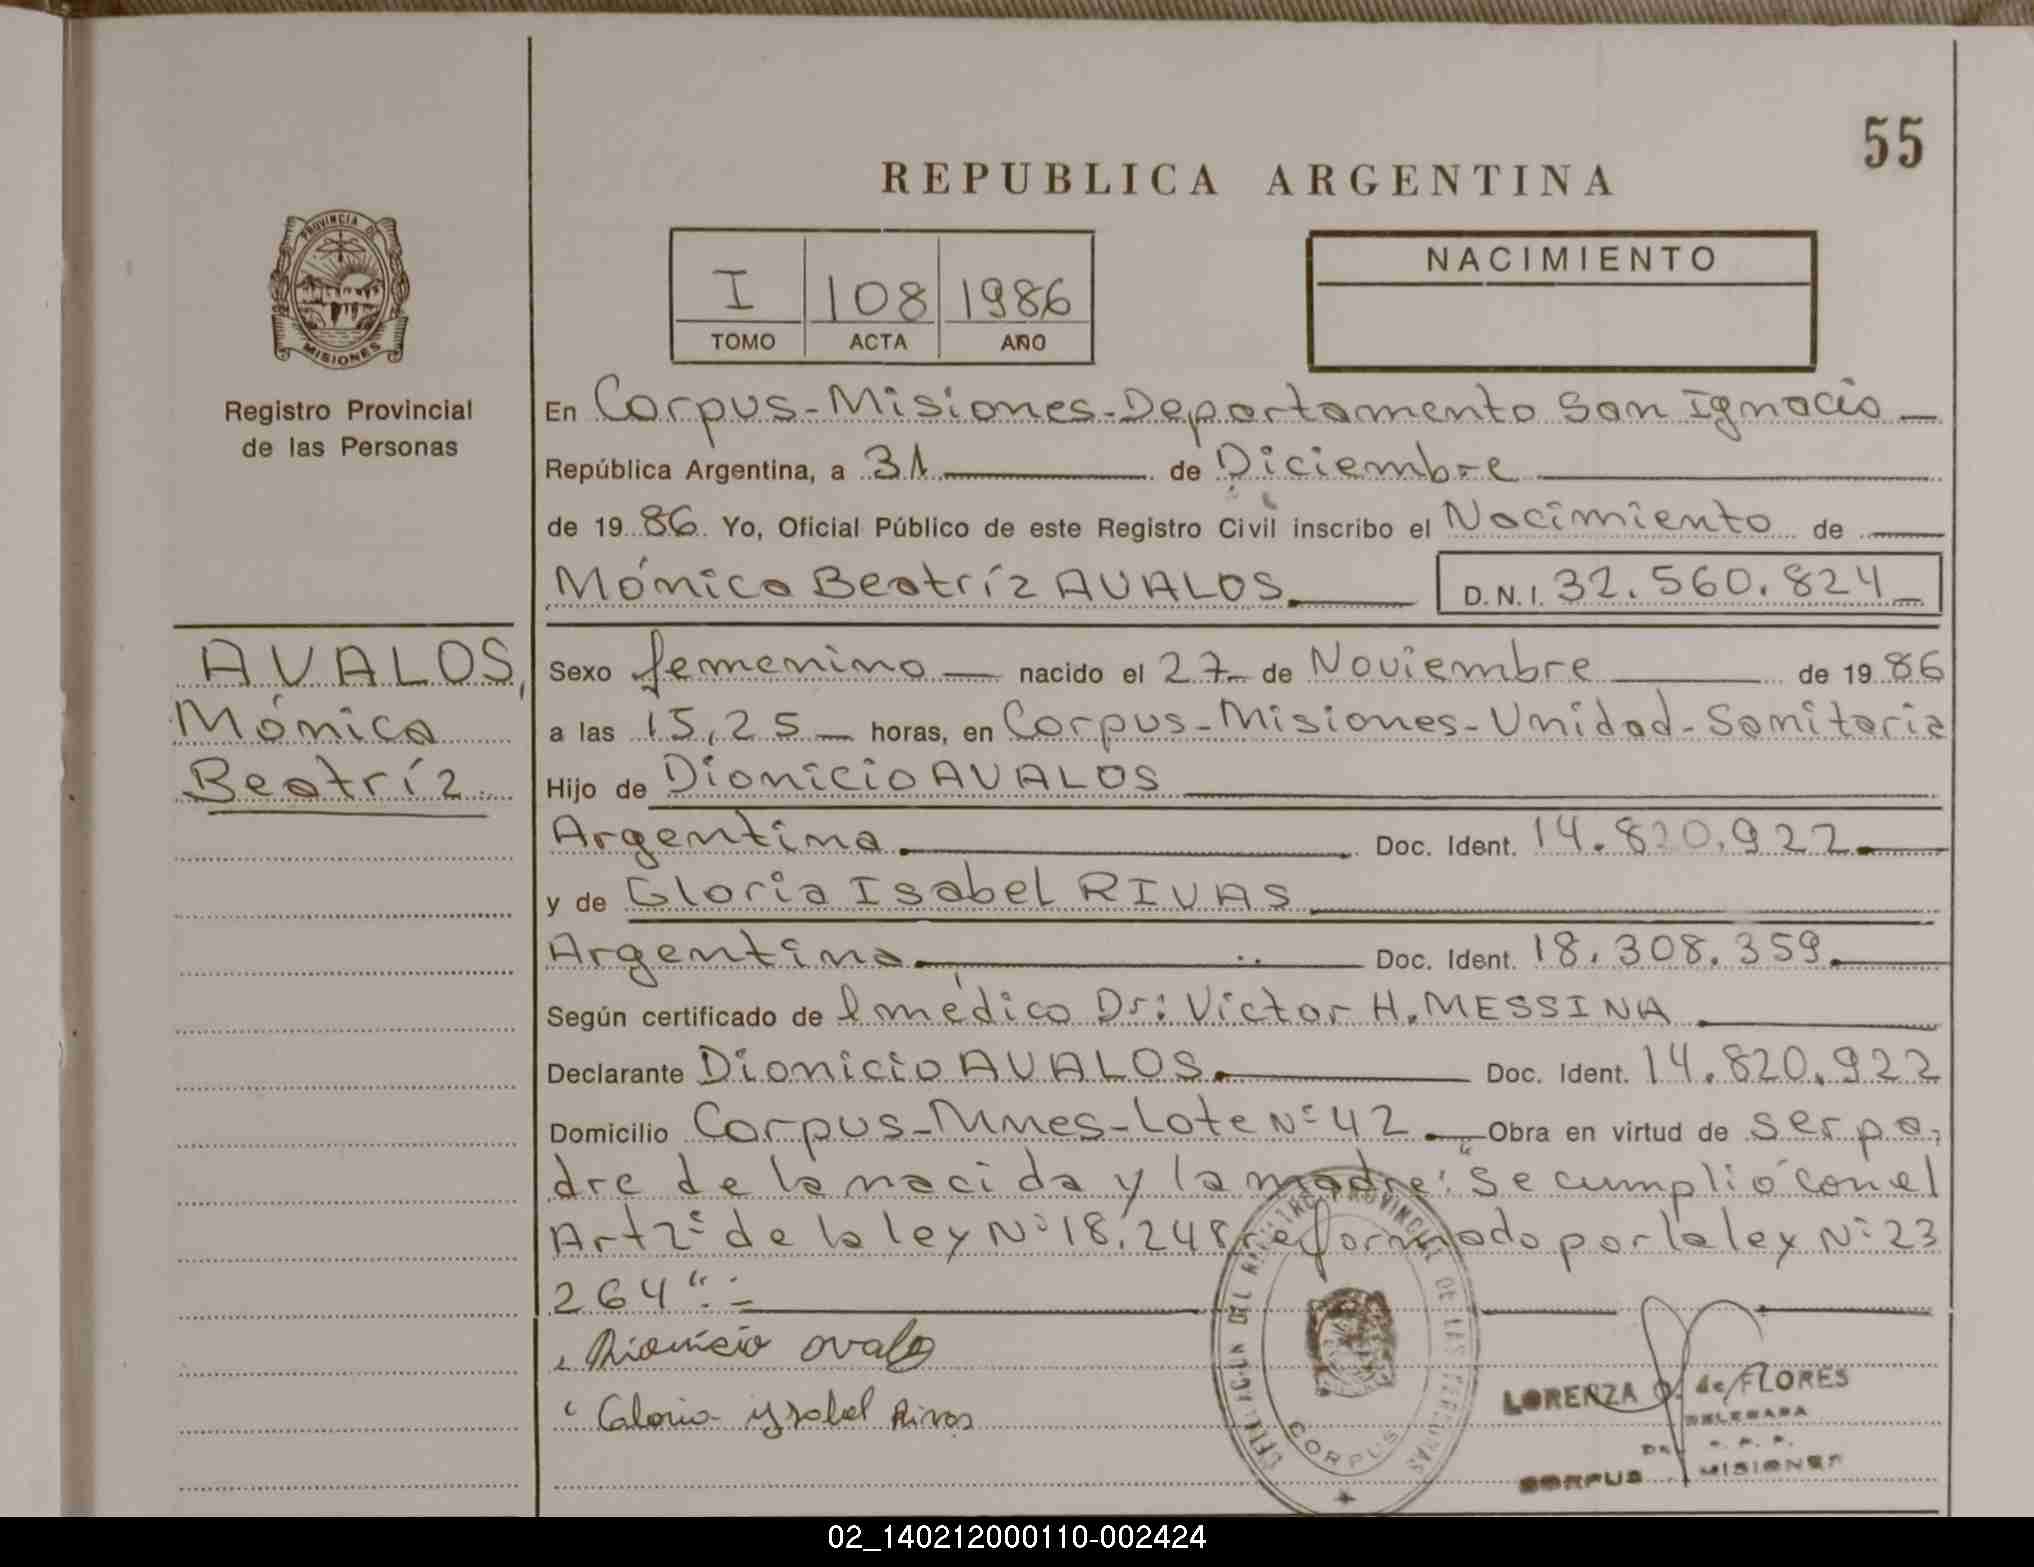 55
REPUBLICA ARGENTINA
PROVINCIA DE
MISIONES
Registro Provincial
de las Personas
I 108 1986
TOMO ACTA AÑO
NACIMIENTO
En Corpus-Misiones-Departamento San Ignacio
República Argentina, a 31 de Diciembre
de 1986. Yo, Oficial Público de este Registro Civil inscribo el Nacimiento de
Mónica Beatríz AVALOS D.N.I. 32.560.824
AVALOS,
Mónica
Beatríz
Sexo femenino nacido el 27 de Noviembre de 1986
a las 15,25 horas, en Corpus-Misiones-Unidad-Sanitaria
Hijo de Dionicio AVALOS
Argentina Doc. Ident. 14.820.922
y de Gloria Isabel RIVAS
Argentina Doc. Ident. 18.308.359
Según certificado de l médico Dr: Victor H. MESSINA
Declarante Dionicio AVALOS Doc. Ident. 14.820.922
Domicilio Corpus-Mnes-Lote Nº 42 Obra en virtud de ser pa-
dre de la nacida y la madre: "Se cumplió con el
Art 2º de la ley Nº 18.248 reformado por la ley Nº 23
264".=
Dionicio ovalo
Gloria ysabel Rivas
DELEGACION DEL REGISTRO PROVINCIAL DE LAS PERSONAS
CORPUS
LORENZA G. de FLORES
DELEGADA
CORPUS MISIONES
02_140212000110-002424